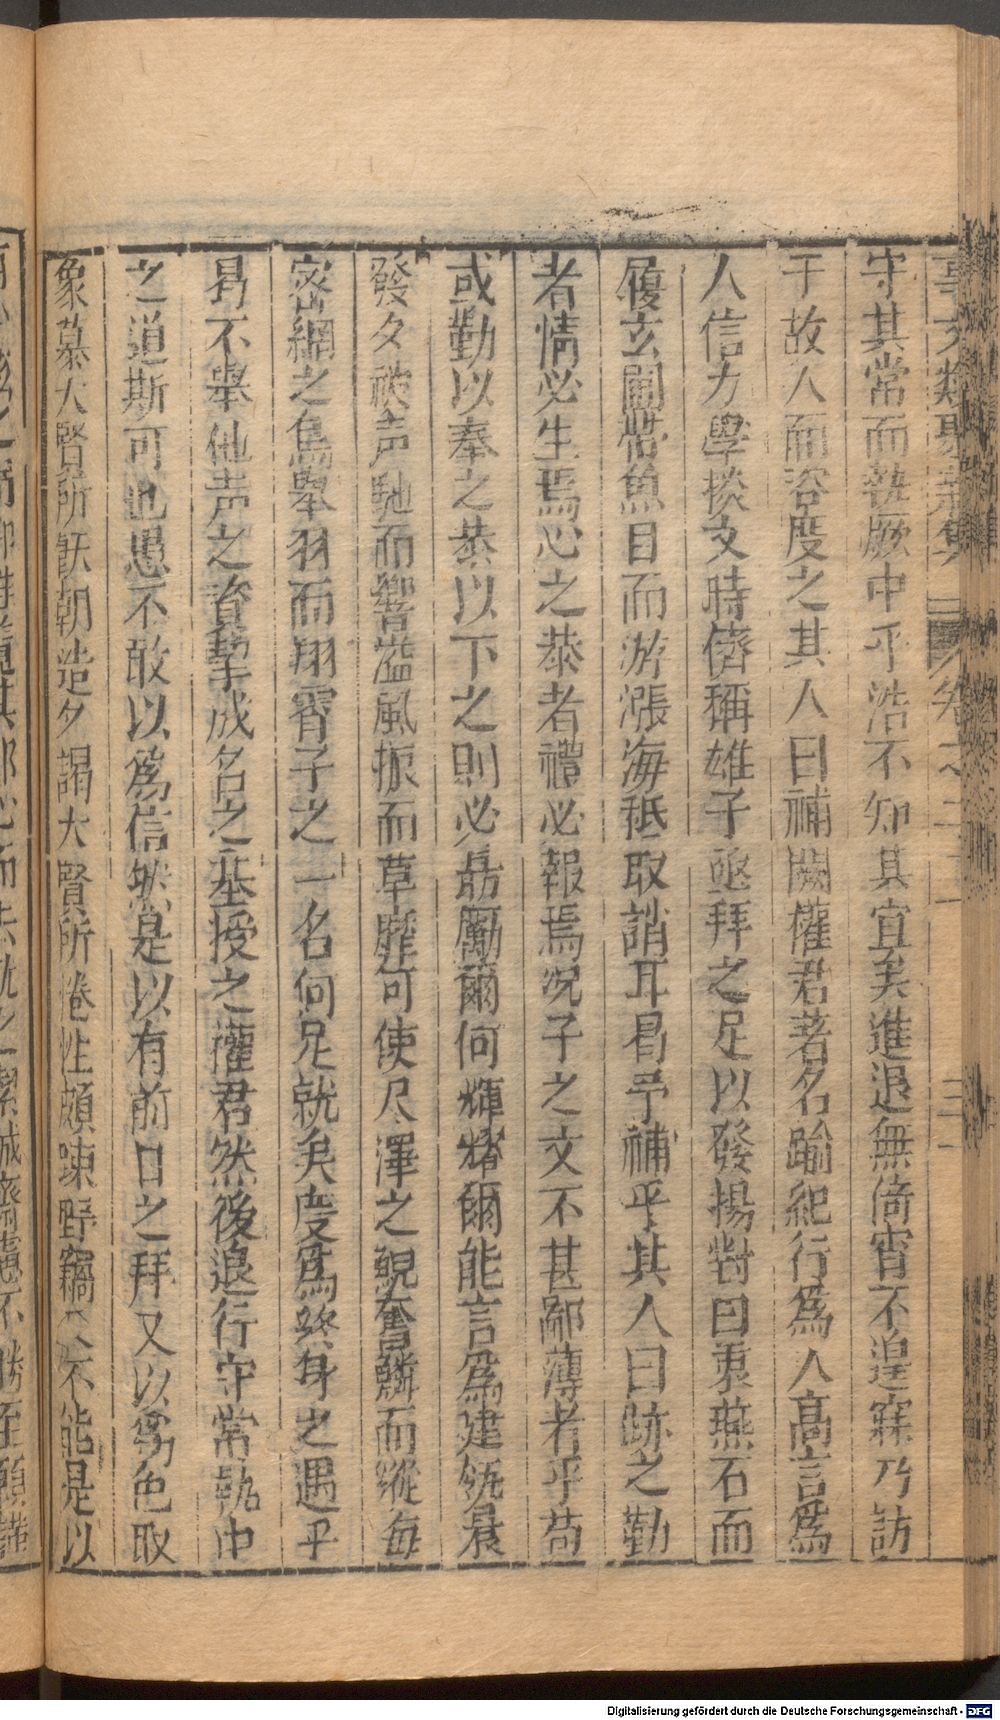 事文類聚
守其常而執厥中乎浩不知其宜矣進退無倚宵不遑寐乃訪
于故人而咨度之其人曰補闕權君著名踰紀行爲人高言爲
人信力學掞文時儕稱雄子亟拜之足以發揚對曰衷燕石而
履玄圃帶魚目而游漲海秖取誚耳曷予補乎其人曰跡之勤
者情必生焉心之恭者禮必報焉況子之文不甚鄙薄者乎苟
或勤以奉之恭以下之則必勗勵爾何輝耀爾能言爲建瓴晨
發夕被声馳而響溢風振而草靡可使尽澤之鯢奮鱗而縱海
密網之鳥舉羽而翔霄子之一名何足就矣度爲終身之遇乎
曷不舉他声之資挈成名之基授之權君然後退行守常執中
之道斯可也愚不敢以爲信然是以有前日之拜又以爲色取
象慕大賢所飫朝造夕謁大賢所倦性頗踈野竊不能是以
Digitalisierung gefördert durch die Deutsche Forschungsgemeinschaft - DFG